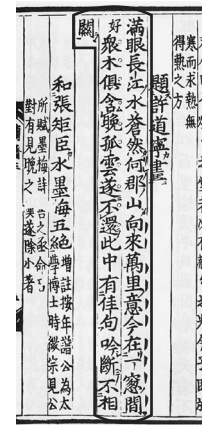 寒而求熱無
得熱之方
題許道寧畫
滿眼長江水蒼然何郡山向來萬里意今在一窻間
衆木俱含晚孤雲遂不還此中有佳句吟斷不相
關
和張矩臣水墨梅五絕
增註按年譜公為太
學博士時徽宗見公
所賦墨梅詩
對有見晚之
遂除小著